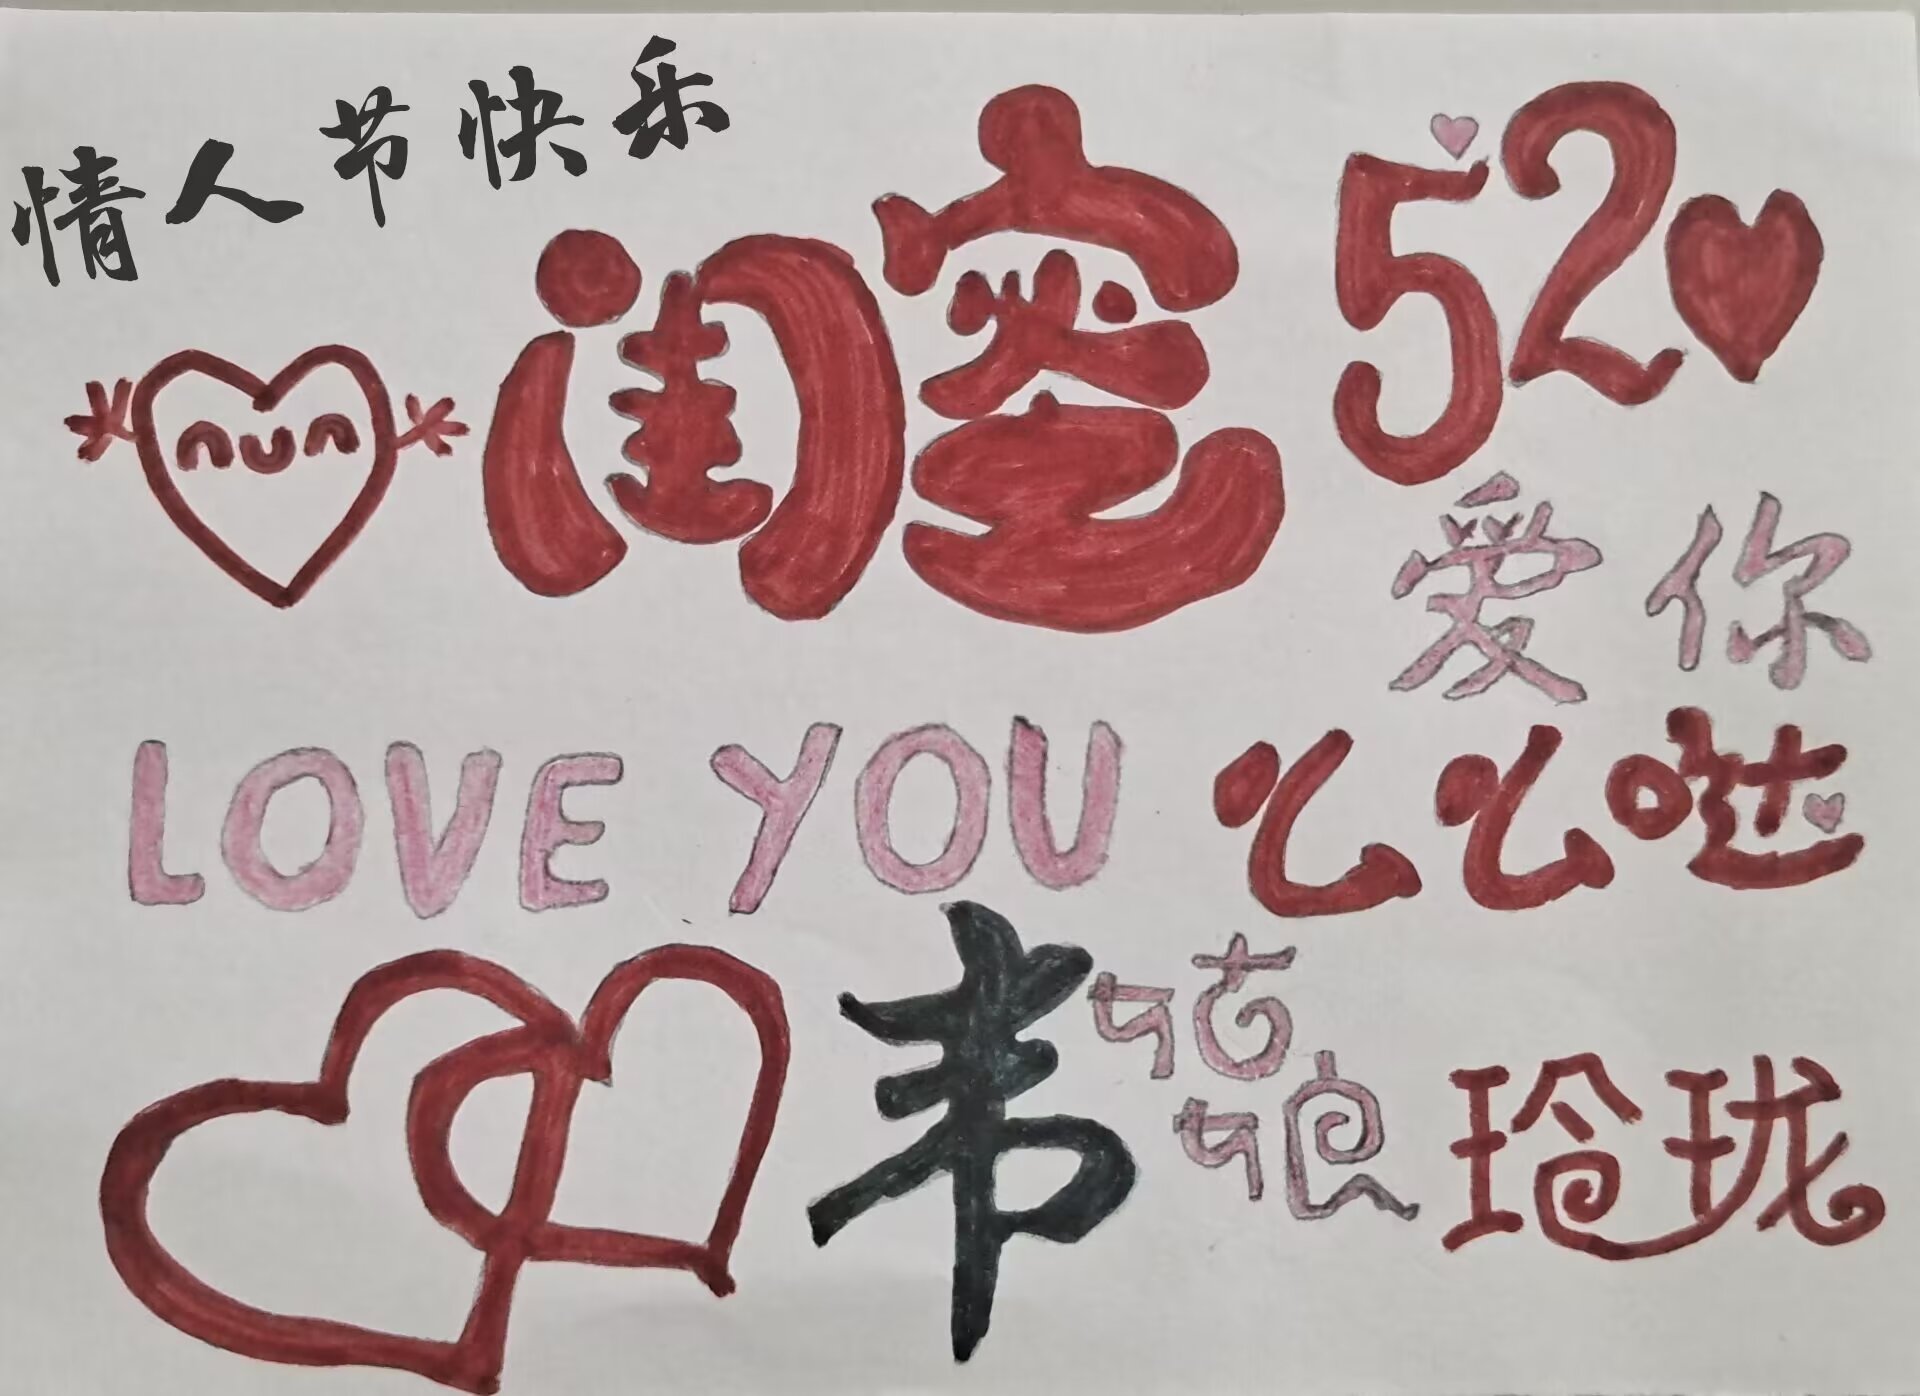 情人节快乐
闺蜜
52
爱你
LOVE YOU
么么哒
韦姑娘
玲珑